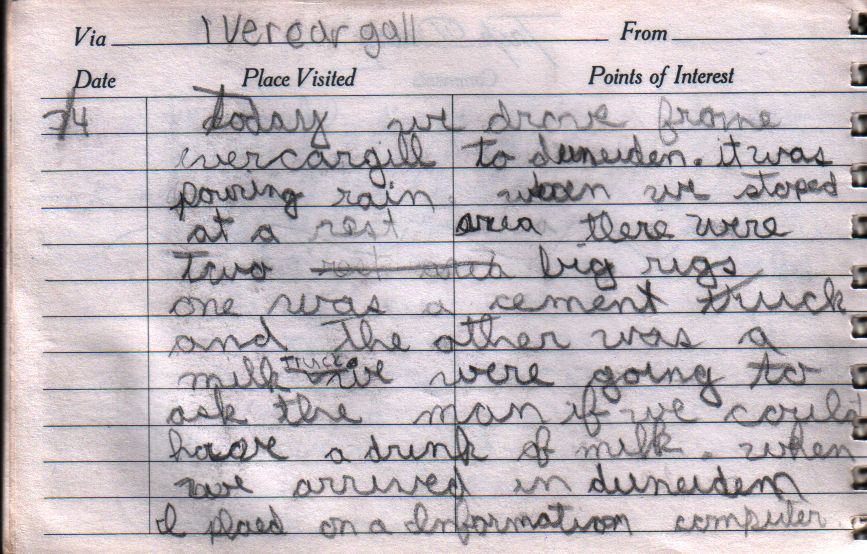 Via Ivercargall From
Date Place Visited Points of Interest
3/4 today we drove frome
evercargill to duneiden. it was
pouring rain. when we stoped
at a rest area there were
two rest area big rigs
one was a cement truck
and the other was a
milk truck. we were going to
ask the man if we could
have a drink of milk. when
we arrived in duneidem
I plaed on a Information computer.